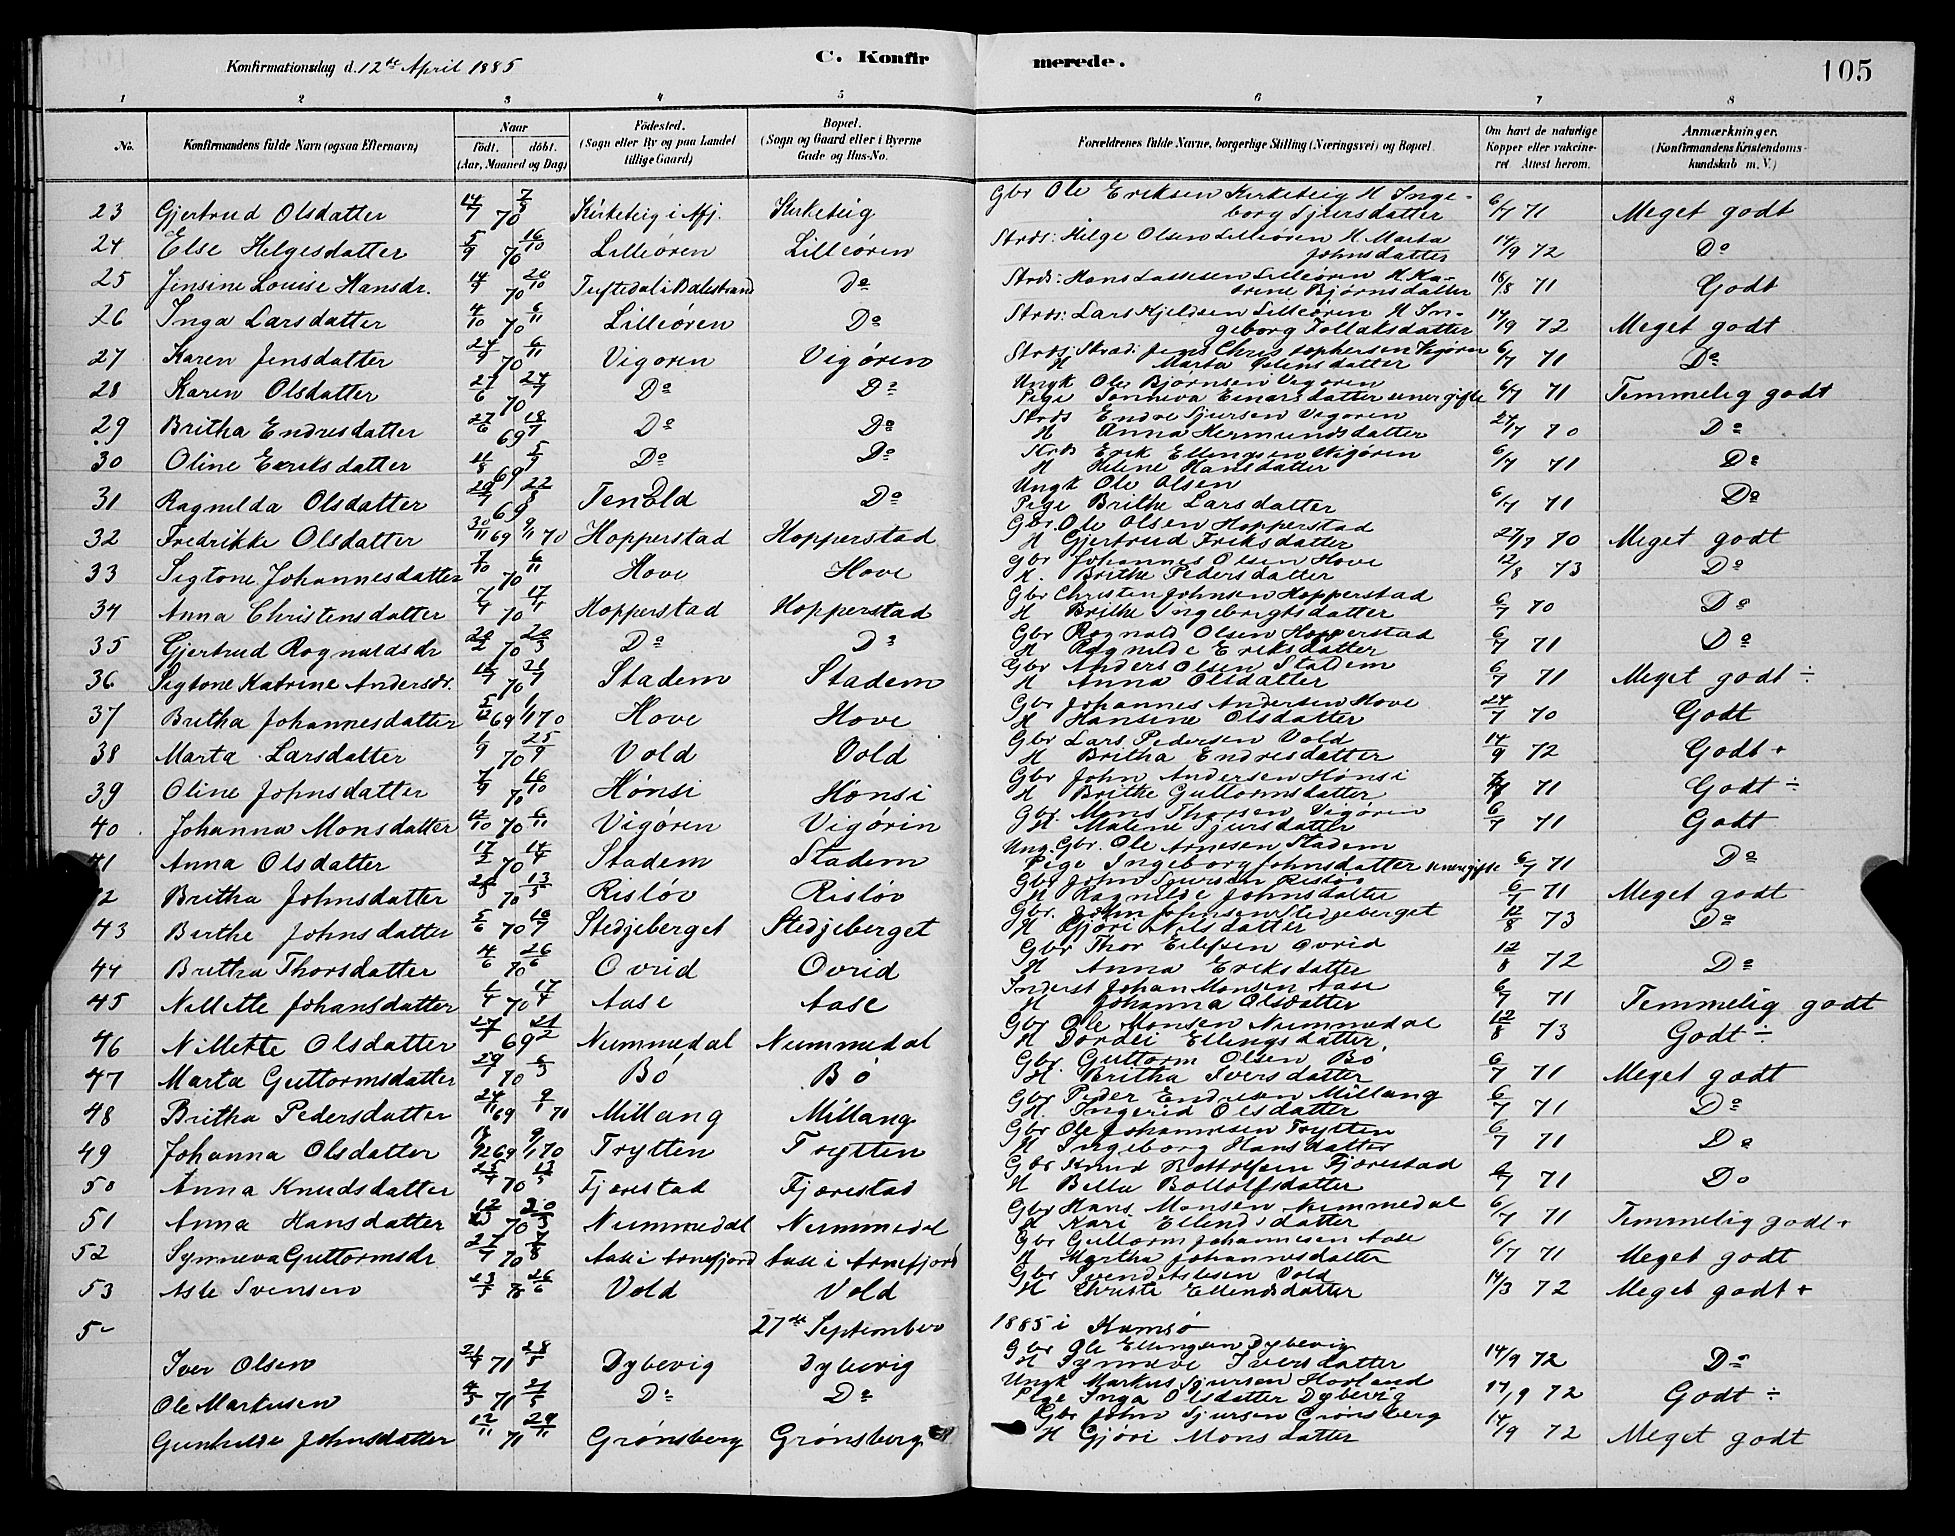 Konfirmationsdag d. 12te April 1885 C. Konfirmerede. 105
1 2 3 4 5 6 7 8
No. Konfirmandens fulde Navn (ogsaa Efternavn) Naar født. døbt. (Aar, Maaned og Dag) Fødested. (Sogn eller By og paa Landet tillige Gaard) Bopæl. (Sogn og Gaard eller i Byerne Gade og Hus-No. Forældrenes fulde Navne, borgerlige Stilling (Næringsvei) og Bopæl. Om havt de naturlige Kopper eller vakcineret Attest herom. Anmærkninger. (Konfirmandens Kristendomskundskab m. V.)
23 Gjertrud Olsdatter 14/7 70 7/8 Kirketeig i Afj. Kirketeig Gbr Ole Eriksen Kirketeig H Ingeborg Sjursdatter 6/7 71 Meget godt
24 Else Helgesdatter 5/9 70 16/10 Lilleøren Lilleøren Strds: Helge Olsen Lilleøren H. Marta Johnsdatter 14/9 72 Do
25 Jensine Louise Hansdr. 14/9 70 20/10 Tuftedal i Balestrand Do Strds: Hans Lassesen Lilleøren H Katrine Bjørnsdatter 18/8 71 Godt
26 Inga Larsdatter 4/10 70 6/11 Lilleøren Do Strds: Lars Kjeldsen Lilleøren H Ingeborg Tollaksdatter 14/9 72 Meget godt
27 Karen Jensdatter 70 6/11 Vigøren Vigøren Strds: Skræd: Jens Christophersen Vigøren H Marta datter 6/7 71 Do
28 Karen Olsdatter 21/6 70 24/7 Do Do Ungk Ole Bjørnsen Vigøren Pige Sønneva Einarsdatter uden gifte 6/7 71 Temmelig godt
29 Britha Endresdatter 27/6 69 18/7 Do Do Strds Endre Sjursen Vigøren H Anna Hermundsdatter 24/7 70 Do
30 Oline Eriksdatter 11/8 69 5/9 Do Do Strds Erik Ellingsen Vigøren H Helene Hansdatter 6/7 71 Do
31 Ragnilda Olsdatter 20/7 69 22/8 Tenold Do Ungk Ole Olsen Pige Brithe Larsdatter 6/7 71 Do
32 Fredrikke Olsdatter 30/11 69 9/1 70 Hopperstad Hopperstad Gbr. Ole Olsen Hopperstad H Gjertrud Eriksdatter 27/7 70 Meget godt
33 Sigtone Johannesdatter 7/10 70 6/11 Hove Hove Gbr Johannes Olsen Hove H. Brithe Pedersdatter 12/8 73 Do
34 Anna Christensdatter 7/4 70 17/4 Hopperstad Hopperstad Gbr Christen Johnsen Hopperstad H Brithe Ingebrigtsdatter 6/7 70 Do
35 Gjertrud Rognaldsdr 20/2 70 20/3 Do Do Gbr Rognald Olsen Hopperstad H Ragnilde Eriksdatter 6/7 71 Do
36 Sigtone Katrine Andersdr. 70 21/7 Stadem Stadem Gbr Anders Olsen Stadem H Anna Olsdatter 6/7 71 Meget godt ÷
37 Britha Johannesdatter 5/12 69 1/1 70 Hove Hove Gbr Johannes Andersen Hove H Hansine Olsdatter 24/7 70 Godt
38 Marta Larsdatter 1/9 70 25/9 Vold Vold Gbr Lars Pedersen Vold H Britha Endresdatter 14/9 72 Godt +
39 Oline Johnsdatter 7/9 70 16/10 Hønsi Hønsi Gbr John Andersen Hønsi H Brithe Guttormsdatter 71 Godt ÷
40 Johanna Monsdatter 70 6/11 Vigøren Vigørin Gbr. Mons Thorsen Vigøren H Malene Sjursdatter 6/7 71 Godt
41 Anna Olsdatter 17/2 70 17/4 Stadem Stadem Ung. Gbr. Ole Arnesen Stadem Pige Ingeborg Johnsdatter 6/7 71 Do
42 Britha Johnsdatter 70 13/5 Risløv Risløv Gbr John Sjursen Risløv H Ragnilde Johnsdatter 6/7 71 Meget godt
43 Berthe Johnsdatter 5/6 70 10/7 Stedjeberget Stedjeberget Gbr. John Johnsen Stedjeberget H Gjøri Nilsdatter 12/8 73 Do
44 Britha Thorsdatter 4/6 70 26/6 Ovrid Ovrid Gbr Thor Eilefsen Ovrid H Anna Eriksdatter 12/8 72 Do
45 Nillette Johansdatter 1/4 70 17/4 Aase Aase Inderst Johan Monsen Aase H Johanna Olsdatter 6/7 71 Temmelig godt
46 Nillette Olsdatter 69 21/2 Nummedal Nummedal Gbr Ole Monsen Nummedal H Dordei Ellingsdatter 12/8 73 Godt ÷
47 Marta Guttormsdatter 70 Bø Bø Gbr. Guttorm Olsen Bø H. Britha Iversdatter 6/7 71 Meget godt
48 Britha Pedersdatter 24/11 69 9/1 70 Millang Millang Gbr Peder Endresen Millang H. Ingerid Olsdatter 6/7 71 Do
49 Johanna Olsdatter 69 9/1 70 Trytten Trytten Gbr Ole Johannesen Trytten H Ingeborg Hansdatter 6/7 71 Do
50 Anna Knudsdatter 70 13/5 Fjærestad Fjærestad Gbr Knud Bottolfsen Fjærestad H Bella Bottolfsdatter 71 Do
51 Anna Hansdatter 70 20/3 Nummedal Nummedal Gbr Hans Monsen Nummedal H Kari Ellendsdatter 6/7 71 Temmelig godt +
52 Synneva Guttormsdr 70 7/8 Aase i Arnefjord Aase i Arnefjord Gbr Guttorm Johannesen Aase H Martha Johannesdatter 6/7 71 Meget godt
53 Asle Svensen 23/5 70 26/6 Vold Vold Gbr Svend Aslesen Vold H Christi Ellendsdatter 14/3 72 Meget godt +
5 27de September 1885 i Kumsø
Iver Olsen 21/4 71 28/5 Dybevig Dybevig Gbr Ole Ellingsen Dybevig H Synneve Iversdatter 14/9 72 Do
Ole Markusen 4/5 71 21/5 Do Do Ungk Markus Sjursen Horland Pige Inga Olsdatter Dybevig 14/9 72 Godt ÷
Gunhilde Johnsdatter 12/11 71 29/11 Grønsberg Grønsberg Gbr John Sjursen Grønsberg H Gjøri Monsdatter 14/9 72 Meget godt